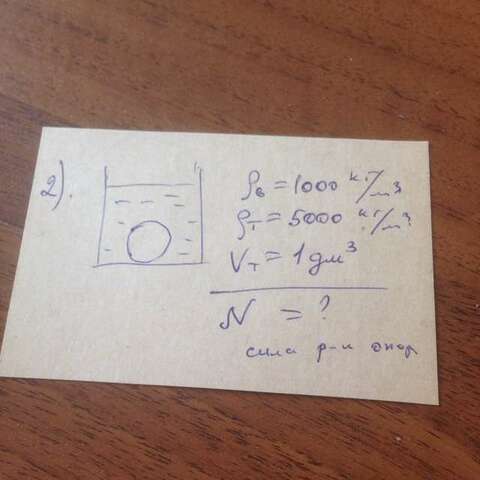 2).
ρв = 1000 кг/м³
ρт = 5000 кг/м³
Vт = 1 дм³
N = ?
сила р-и опор